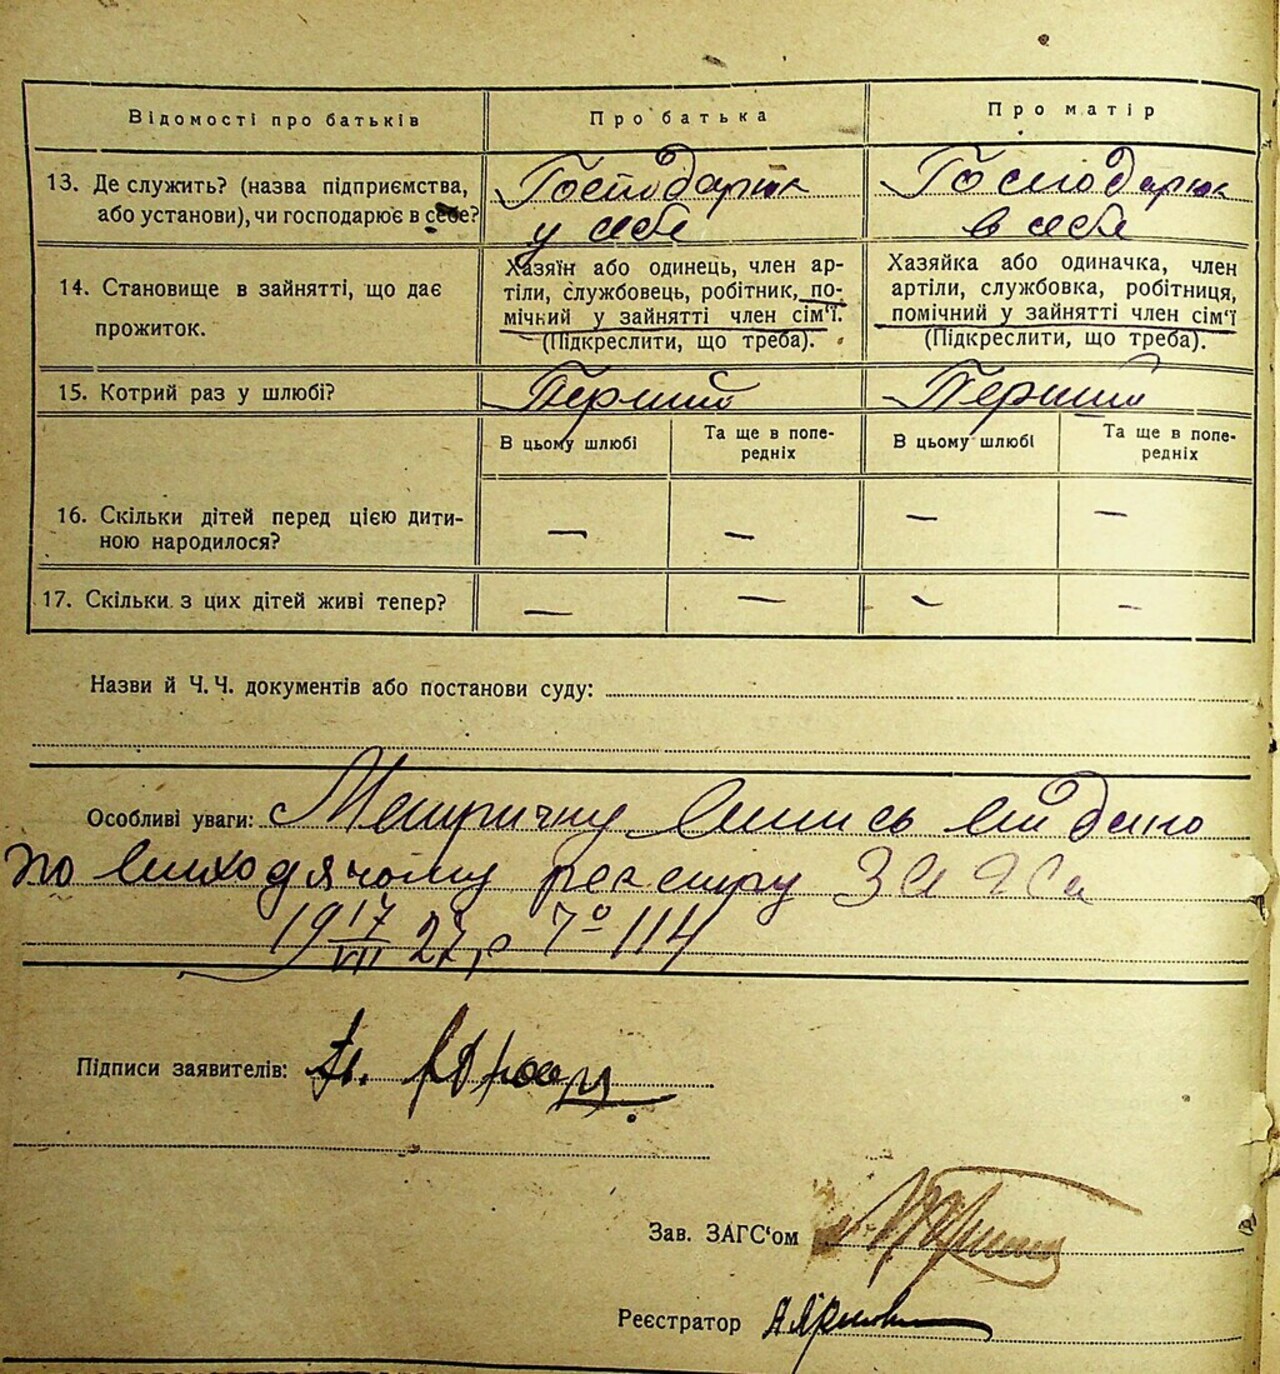 Відомості про батьків
Про батька
Про матір
13. Де служить? (назва підприємства,
або установи), чи господарює в себе?
Господарюк
у себе
Господарюк
в себе
14. Становище в зайнятті, що дає
прожиток.
Хазяїн або одинець, член ар-
тіли, службовець, робітник, по-
мічний у зайнятті член сім'ї.
(Підкреслити, що треба).
Хазяйка або одиначка, член
артіли, службовка, робітниця,
помічний у зайнятті член сім'ї
(Підкреслити, що треба).
15. Котрий раз у шлюбі?
Перший
Перший
В цьому шлюбі
Та ще в попе-
редніх
В цьому шлюбі
Та ще в попе-
редніх
16. Скільки дітей перед цією дити-
ною народилося?
— — — —
17. Скільки з цих дітей живі тепер?
— — — —
Назви й Ч. Ч. документів або постанови суду:
Особливі уваги: Метричну випись видано
по виходячому реєстру ЗАГСа
19 17/VII 27 р № 114
Підписи заявителів:
Зав. ЗАГС'ом
Реєстратор